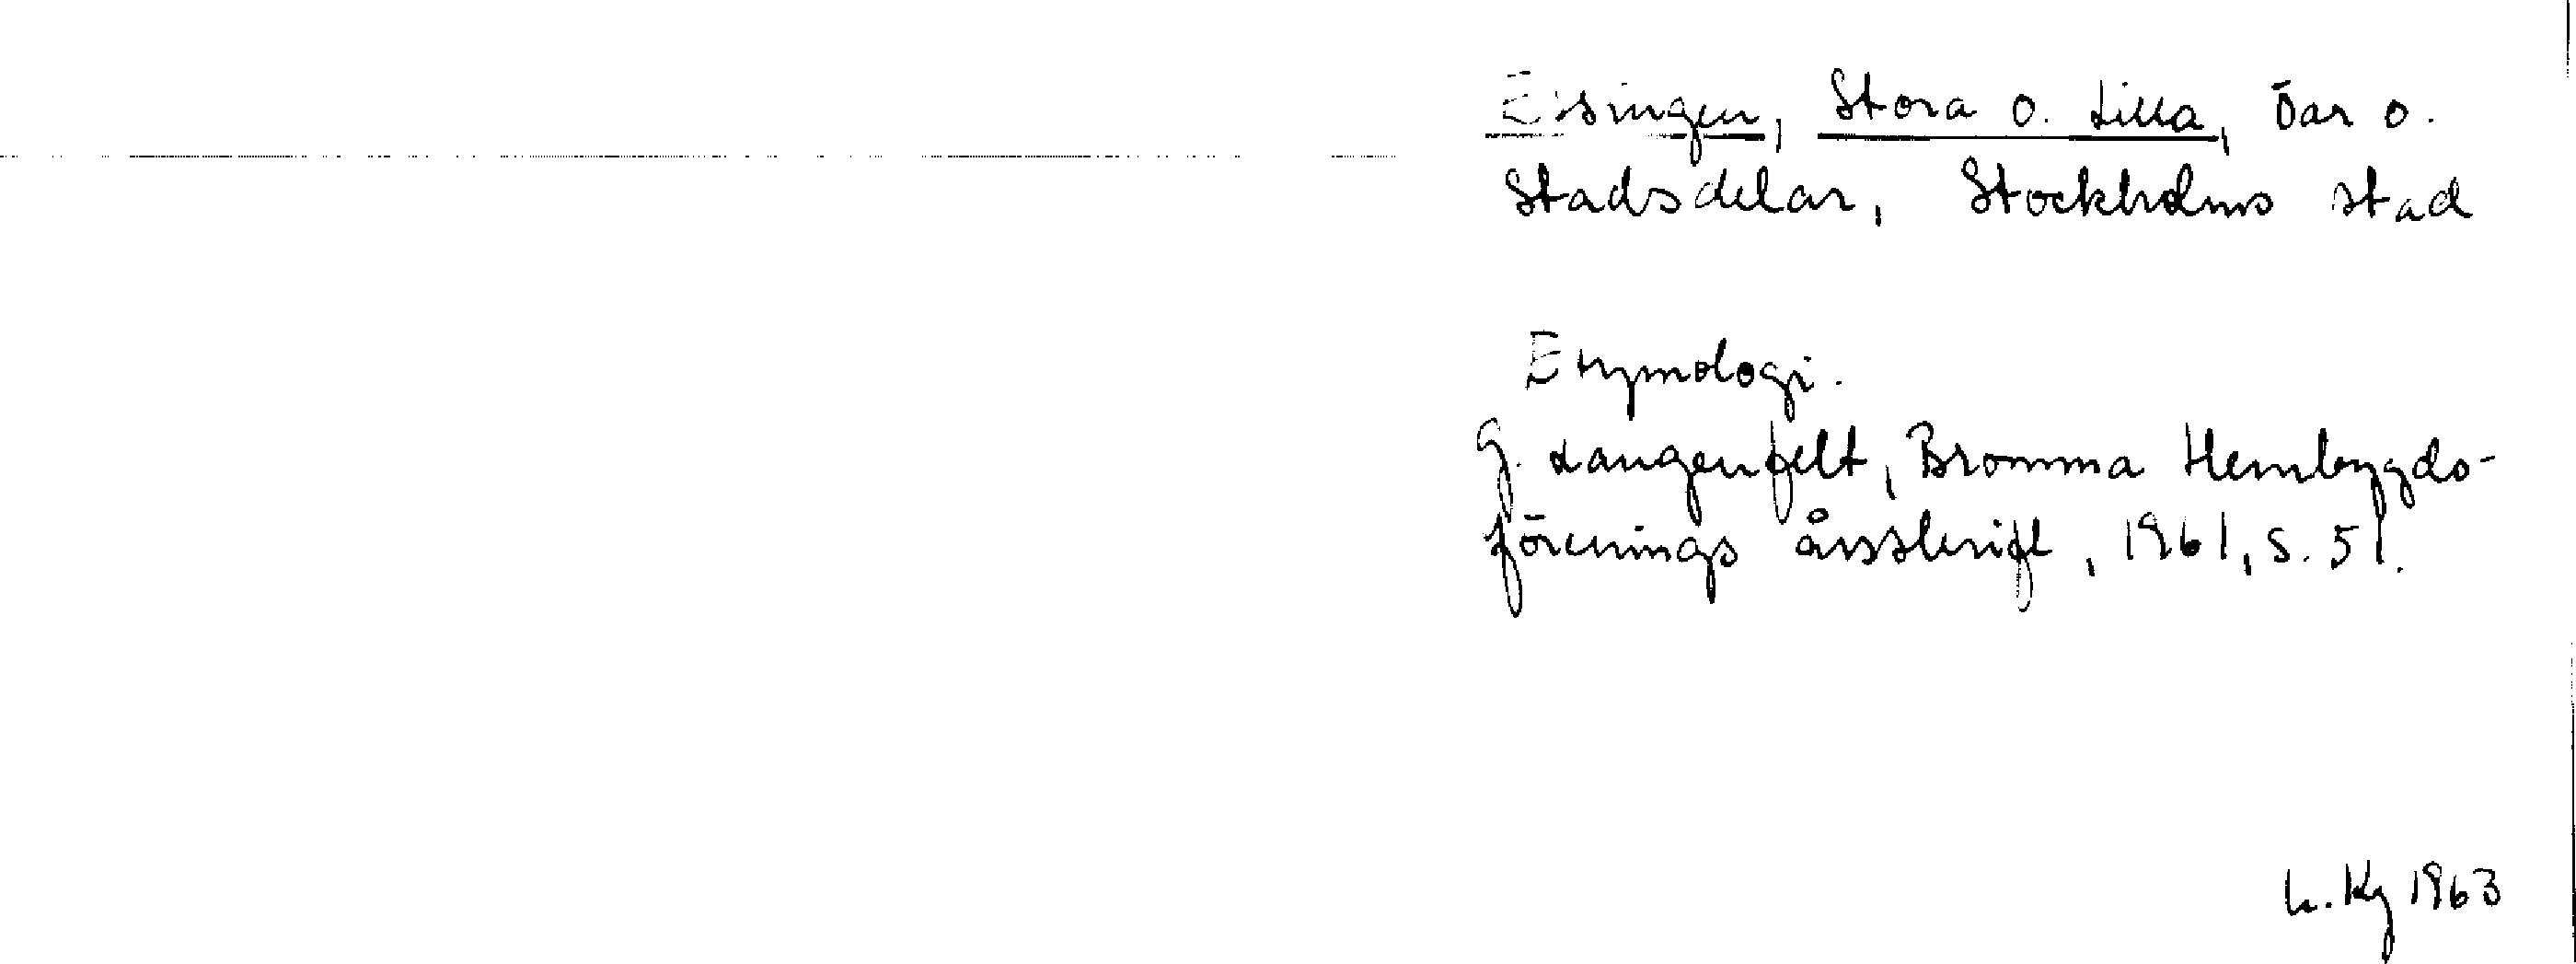 Essingen, Stora o. Lilla, öar o.
Stadsdelar, Stockholms stad
Etymologi.
G. Langenfelt, Bromma Hembygds-
förenings årsskrift, 1961, s. 51.
L. Kg 1963